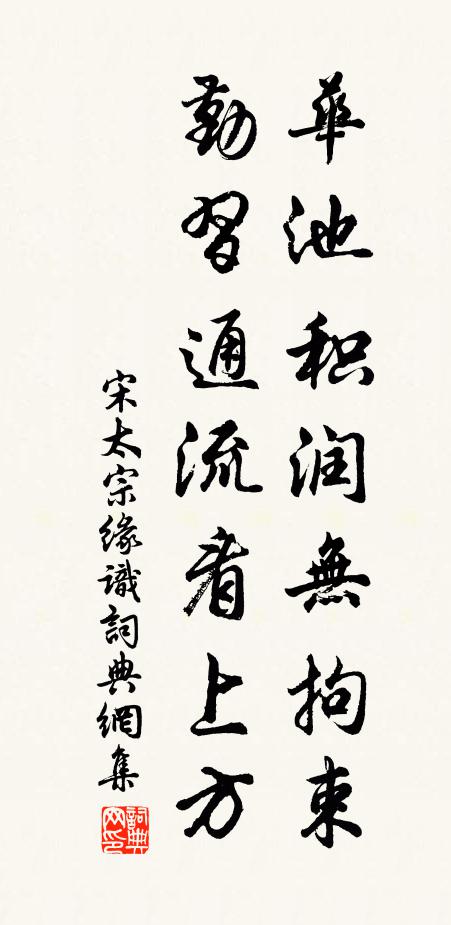 華池积润無拘束
勤習通流看上方
宋太宗緣識詞典網集
詞典网印